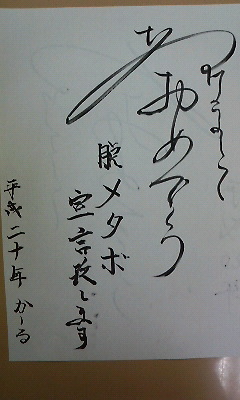 あけまして
おめでとう
脱メタボ
宣言致します
平成二十年 かーる